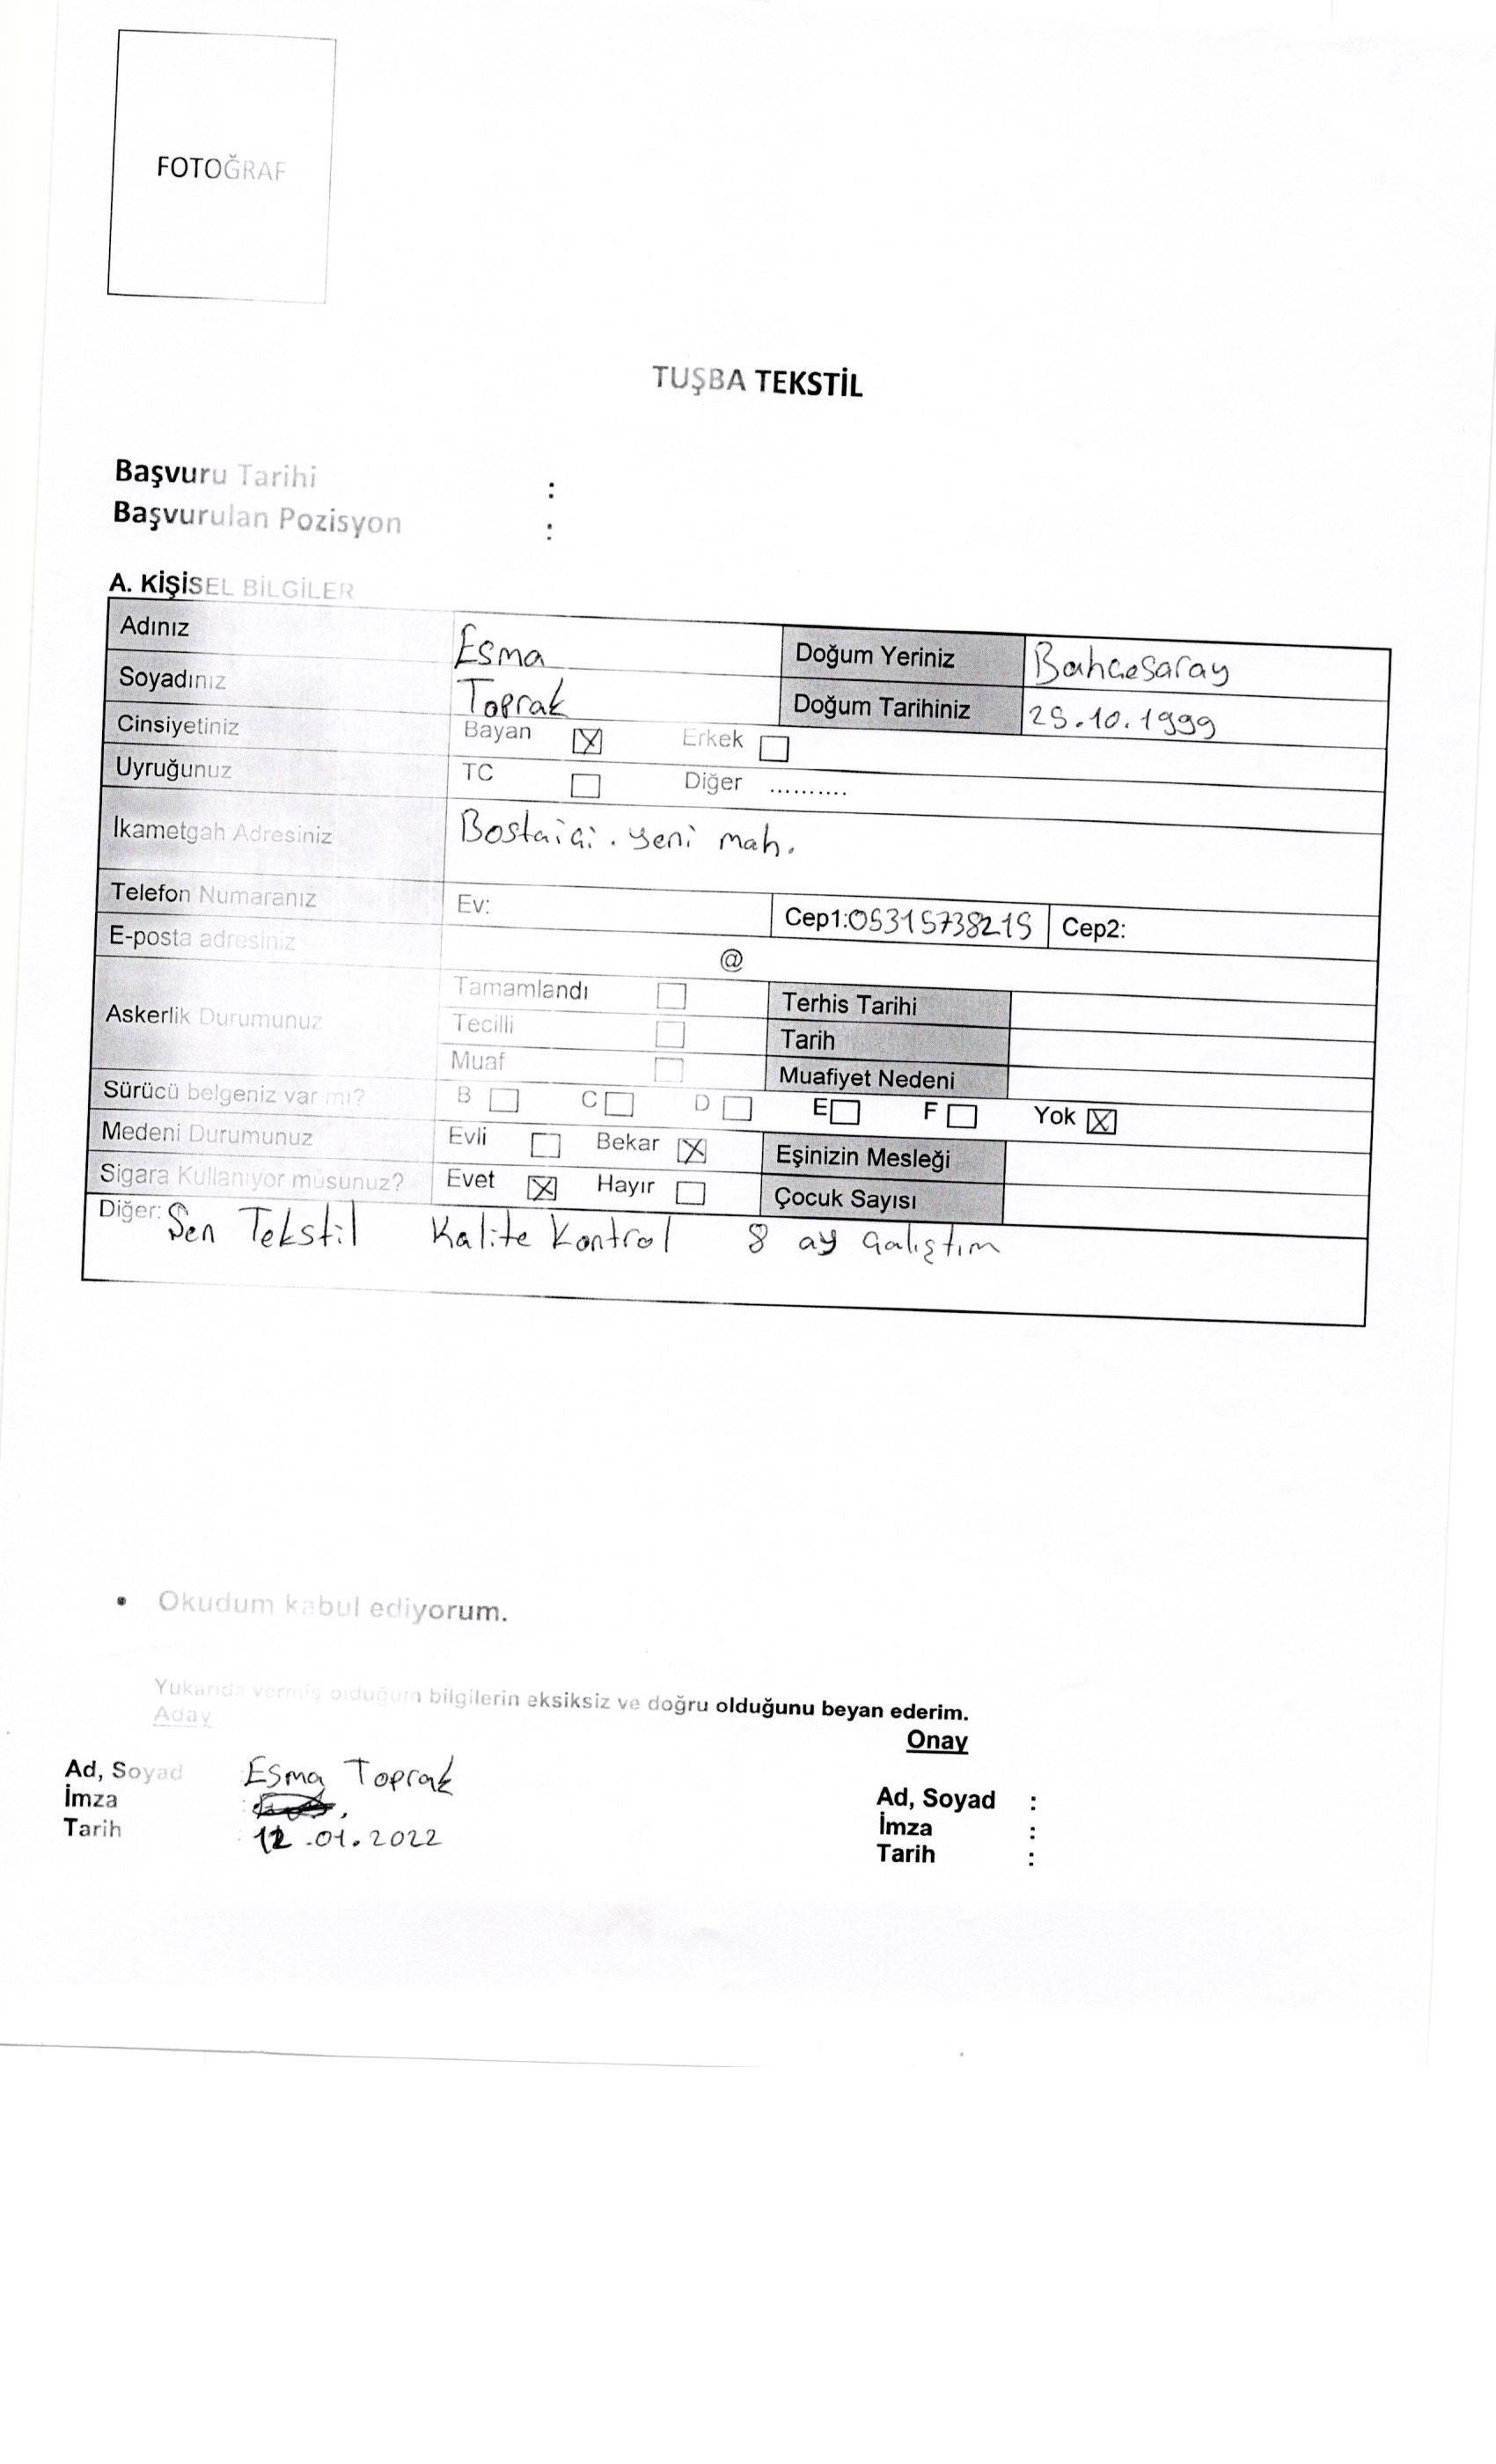 FOTOĞRAF
TUŞBA TEKSTİL
Başvuru Tarihi :
Başvurulan Pozisyon :
A. KİŞİSEL BİLGİLER
Adınız Esma Doğum Yeriniz Bahçesaray
Soyadınız Toprak Doğum Tarihiniz 25.10.1999
Cinsiyetiniz Bayan ☒ Erkek ☐
Uyruğunuz TC ☐ Diğer ..........
İkametgah Adresiniz Bostaiçi. yeni mah.
Telefon Numaranız Ev: Cep1:05315738215 Cep2:
E-posta adresiniz @
Askerlik Durumunuz Tamamlandı ☐ Terhis Tarihi
Tecilli ☐ Tarih
Muaf ☐ Muafiyet Nedeni
Sürücü belgeniz var mı? B ☐ C ☐ D ☐ E ☐ F ☐ Yok ☒
Medeni Durumunuz Evli ☐ Bekar ☒ Eşinizin Mesleği
Sigara Kullanıyor musunuz? Evet ☒ Hayır ☐ Çocuk Sayısı
Diğer: Sen Tekstil Kalite Kontrol 8 ay çalıştım
• Okudum kabul ediyorum.
Yukarıda vermiş olduğum bilgilerin eksiksiz ve doğru olduğunu beyan ederim.
Aday Onay
Ad, Soyad Esma Toprak Ad, Soyad :
İmza : İmza :
Tarih : 12.01.2022 Tarih :